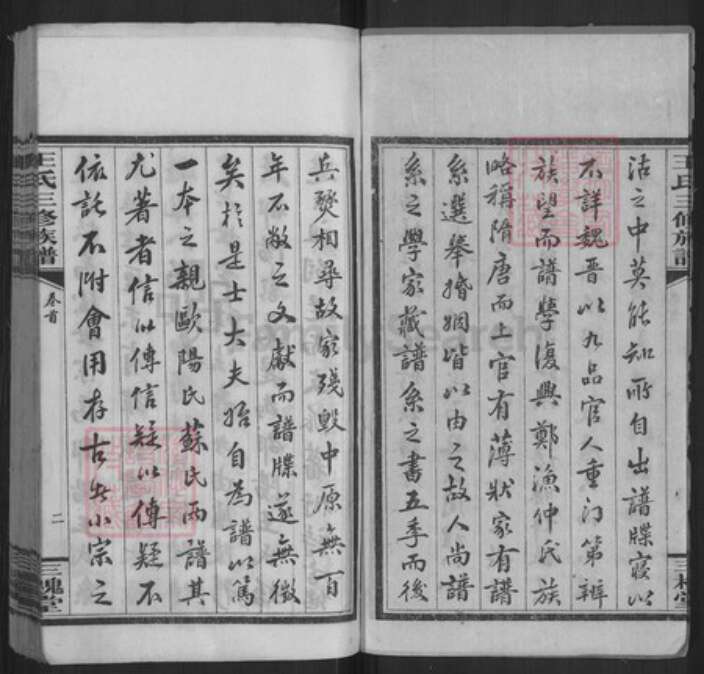 沽之中莫能知所自出譜牒寖以
不詳魏晋以九品官人重门第辨
族望而譜學復興鄭漁仲氏族
略稱隋唐而上官有薄狀家有譜
系選舉婚姻皆以由之故人尚譜
系之學家藏譜系之書五季而後
兵燹相尋故家殘毀中原無百
年不敝之文獻而譜牒遂無徵
矣於是士大夫始自為譜以篤
一本之親歐陽氏蘇氏兩譜其
尤著者信以傳信疑以傳疑不
依託不附會用存古者小宗之
王氏三修族譜
卷首
二
三槐堂